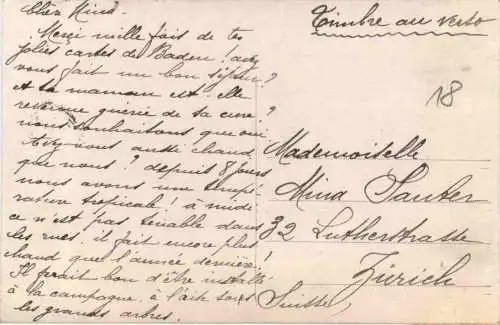 Chère Mina -
Merci mille fois de tes
jolies cartes de Baden! avez
vous fait un bon séjour?
et ta maman est-elle
revenue guérie de sa cure?
nous souhaitons que oui
avez-vous aussi chaud
que nous? depuis 8 jours
nous avons une tempé-
rature tropicale! à midi
ce n'est pas tenable dans
les rues. il fait encore plus
chaud que l'année dernière!
Il ferait bon d'être installé
à la campagne, à l'air sous
les grands arbres.
Timbre au verso
18
Mademoiselle
Mina Sauter
32 Lutherstrasse
Zürich
Suisse